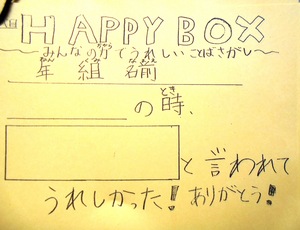 HAPPY BOX
〜みんなの力でうれしいことばさがし〜
年 組 名前
の時、
と言われて
うれしかった!ありがとう!